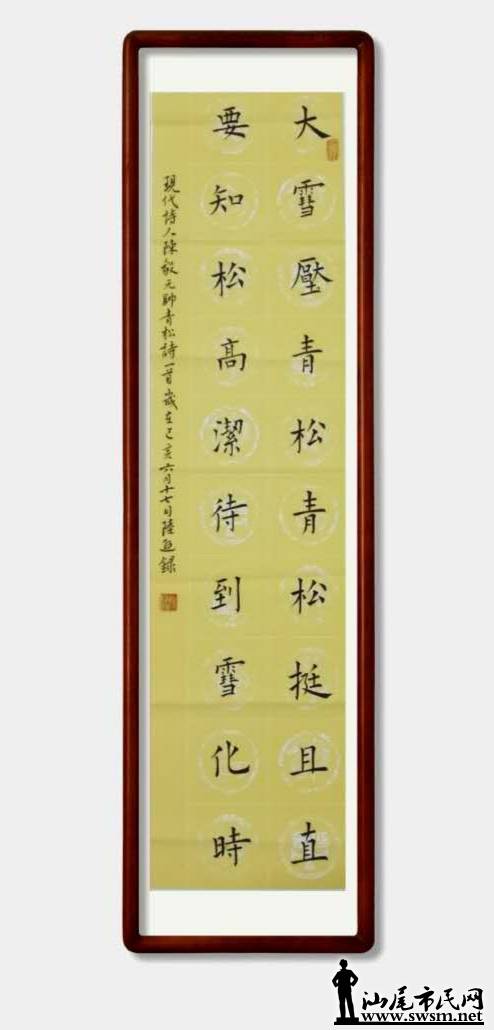 大雪壓青松青松挺且直
要知松高潔待到雪化時
現代詩人陳毅元帥青松詩一首歲在己亥六月十七日陸逸錄
汕尾市民网
www.swsm.net